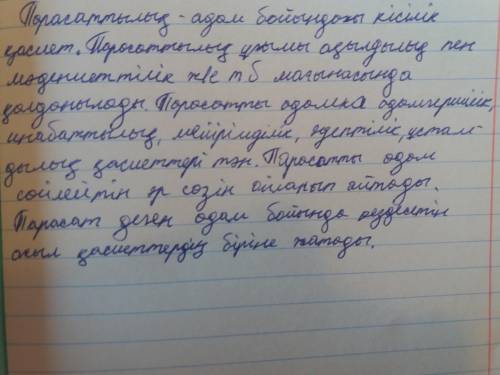 Парасаттылық - адам бойындағы кісілік
қасиет. Парасаттылық ұғымы ақылдылық пен
мәдениеттілік және т б мағынасында
қолданылады. Парасатты адамға адамгершілік,
инабаттылық, мейірімділік, әдептілік, ұстам-
дылық қасиеттері тән. Парасатты адам
сөйлейтін әр сөзін ойланып айтады.
Парасат деген адам бойында кездесетін
асыл қасиеттердің біріне жатады.